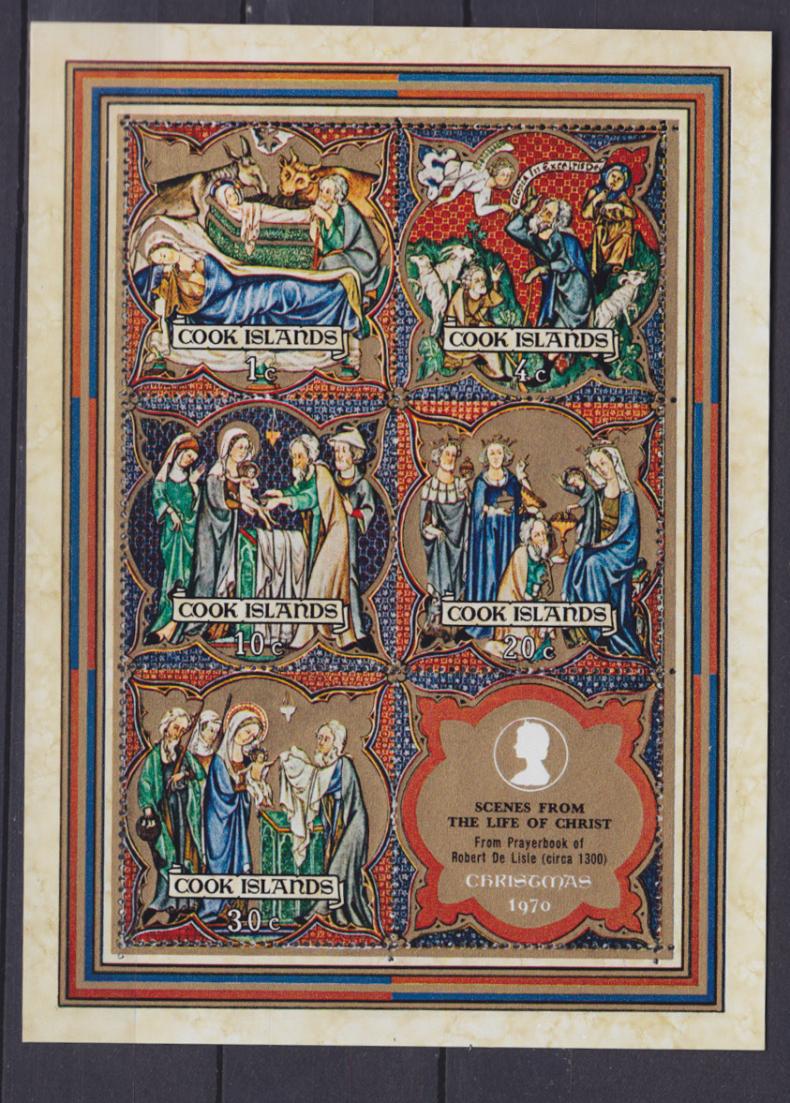 Gloria In Excelsis De
COOK ISLANDS
1 c
COOK ISLANDS
4 c
COOK ISLANDS
10 c
COOK ISLANDS
20 c
COOK ISLANDS
30 c
SCENES FROM
THE LIFE OF CHRIST
From Prayerbook of
Robert De Lisle (circa 1300)
CHRISTMAS
1970